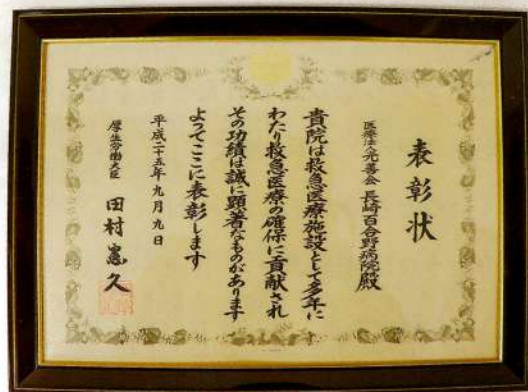 表彰状
医療法人光善会 長崎百合野病院殿
貴院は救急医療施設として多年に
わたり救急医療の確保に貢献され
その功績は誠に顕著なものがあります
よってここに表彰します
平成二十五年九月九日
厚生労働大臣 田村憲久